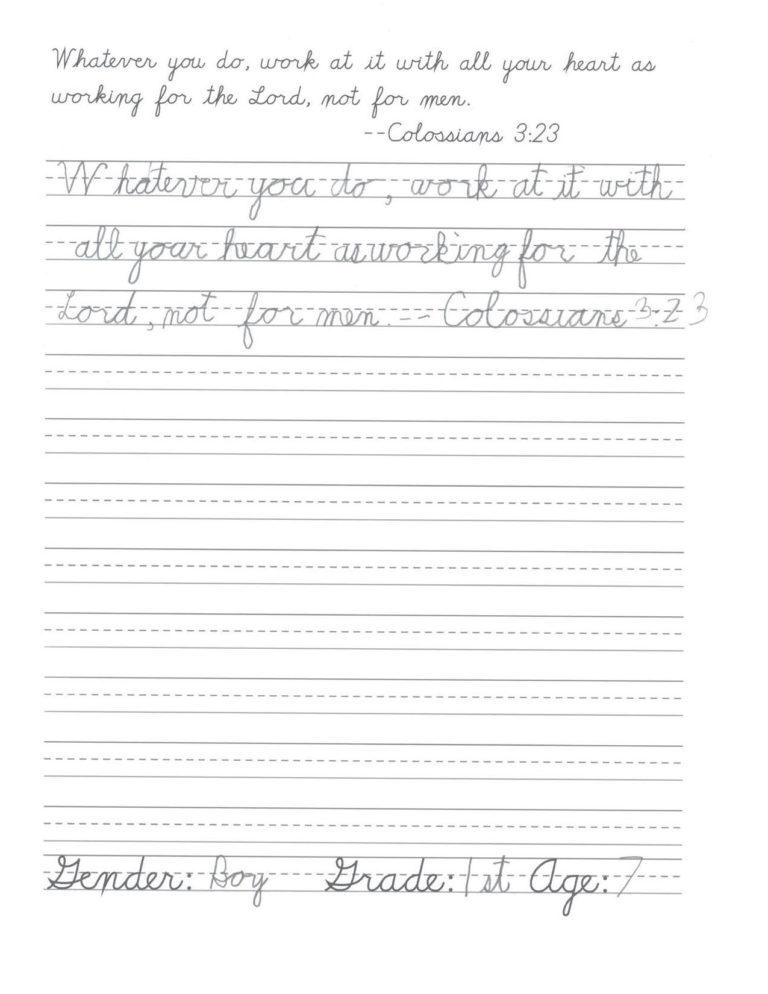 Whatever you do, work at it with all your heart as
working for the Lord, not for men.
--Colossians 3:23
Whatever you do, work at it with
all your heart as working for the
Lord, not for men. -- Colossians 3:23
Gender: Boy Grade: 1st Age: 7